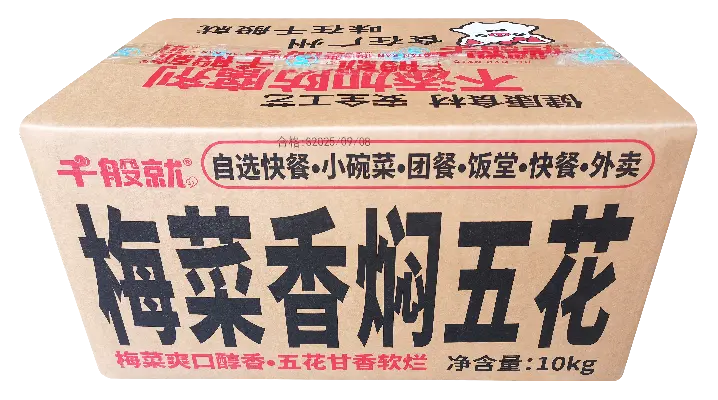 味在千般就
食在广州
不添加防腐剂
健康食材 安全工艺
合格:S2025/09/08
千般就®
自选快餐•小碗菜•团餐•饭堂•快餐•外卖
梅菜香焖五花
梅菜爽口醇香•五花甘香软烂
净含量:10kg